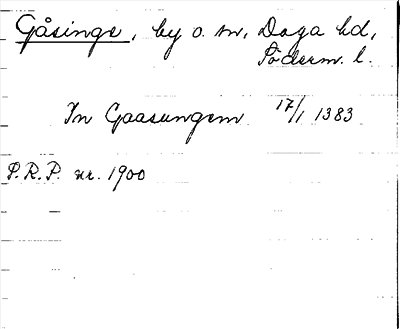 Gåsinge, by o. sn, Daga hd,
Söderm. l.
In Gaasungem 17/1 1383
P.R.P. nr. 1900